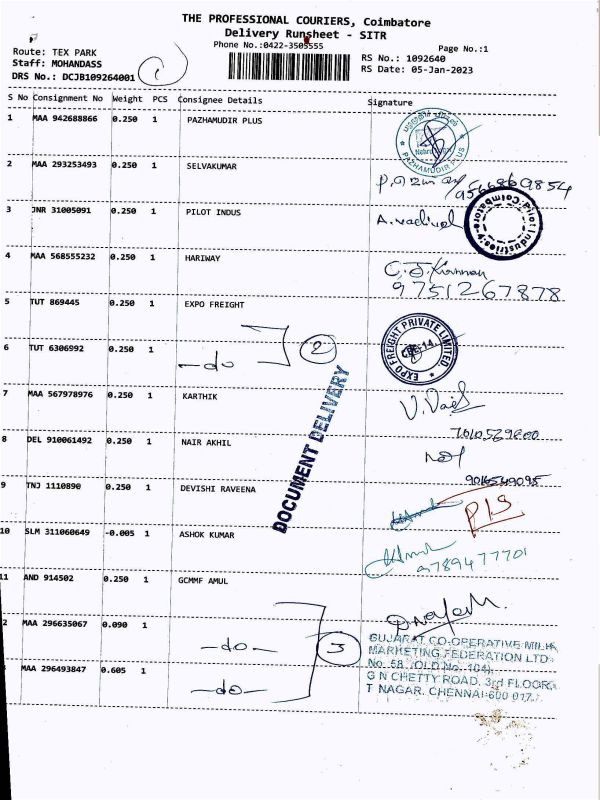 THE PROFESSIONAL COURIERS, Coimbatore
Delivery Runsheet - SITR
Phone No.:0422-3505555
Page No.:1
Route: TEX PARK
Staff: MOHANDASS
DRS No.: DCJB109264001
1
RS No.: 1092640
RS Date: 05-Jan-2023
S No Consignment No Weight PCS Consignee Details Signature
1 MAA 942688866 0.250 1 PAZHAMUDIR PLUS
PAZHAMUDIR PLUS
2 MAA 293253493 0.250 1 SELVAKUMAR
3 JNR 31005091 0.250 1 PILOT INDUS A. Vadivel
Pilot Industries
Coimbatore
4 MAA 568555232 0.250 1 HARIWAY
9751267878
5 TUT 869445 0.250 1 EXPO FREIGHT
EXPO FREIGHT PRIVATE LIMITED.
CBE-14.
6 TUT 6306992 0.250 1 -do- 2
DOCUMENT DELIVERY
7 MAA 567978976 0.250 1 KARTHIK
8 DEL 910061492 0.250 1 NAIR AKHIL
9 TNJ 1110890 0.250 1 DEVISHI RAVEENA
10 SLM 311060649 -0.005 1 ASHOK KUMAR
9789477701
11 AND 914502 0.250 1 GCMMF AMUL
2 MAA 296635067 0.090 1 -do- 3
GUJARAT CO-OPERATIVE MILK
MARKETING FEDERATION LTD
No. 58, (OLD No. 104)
G N CHETTY ROAD, 3rd FLOOR,
T NAGAR, CHENNAI-600 017.
MAA 296493847 0.605 1 -do-